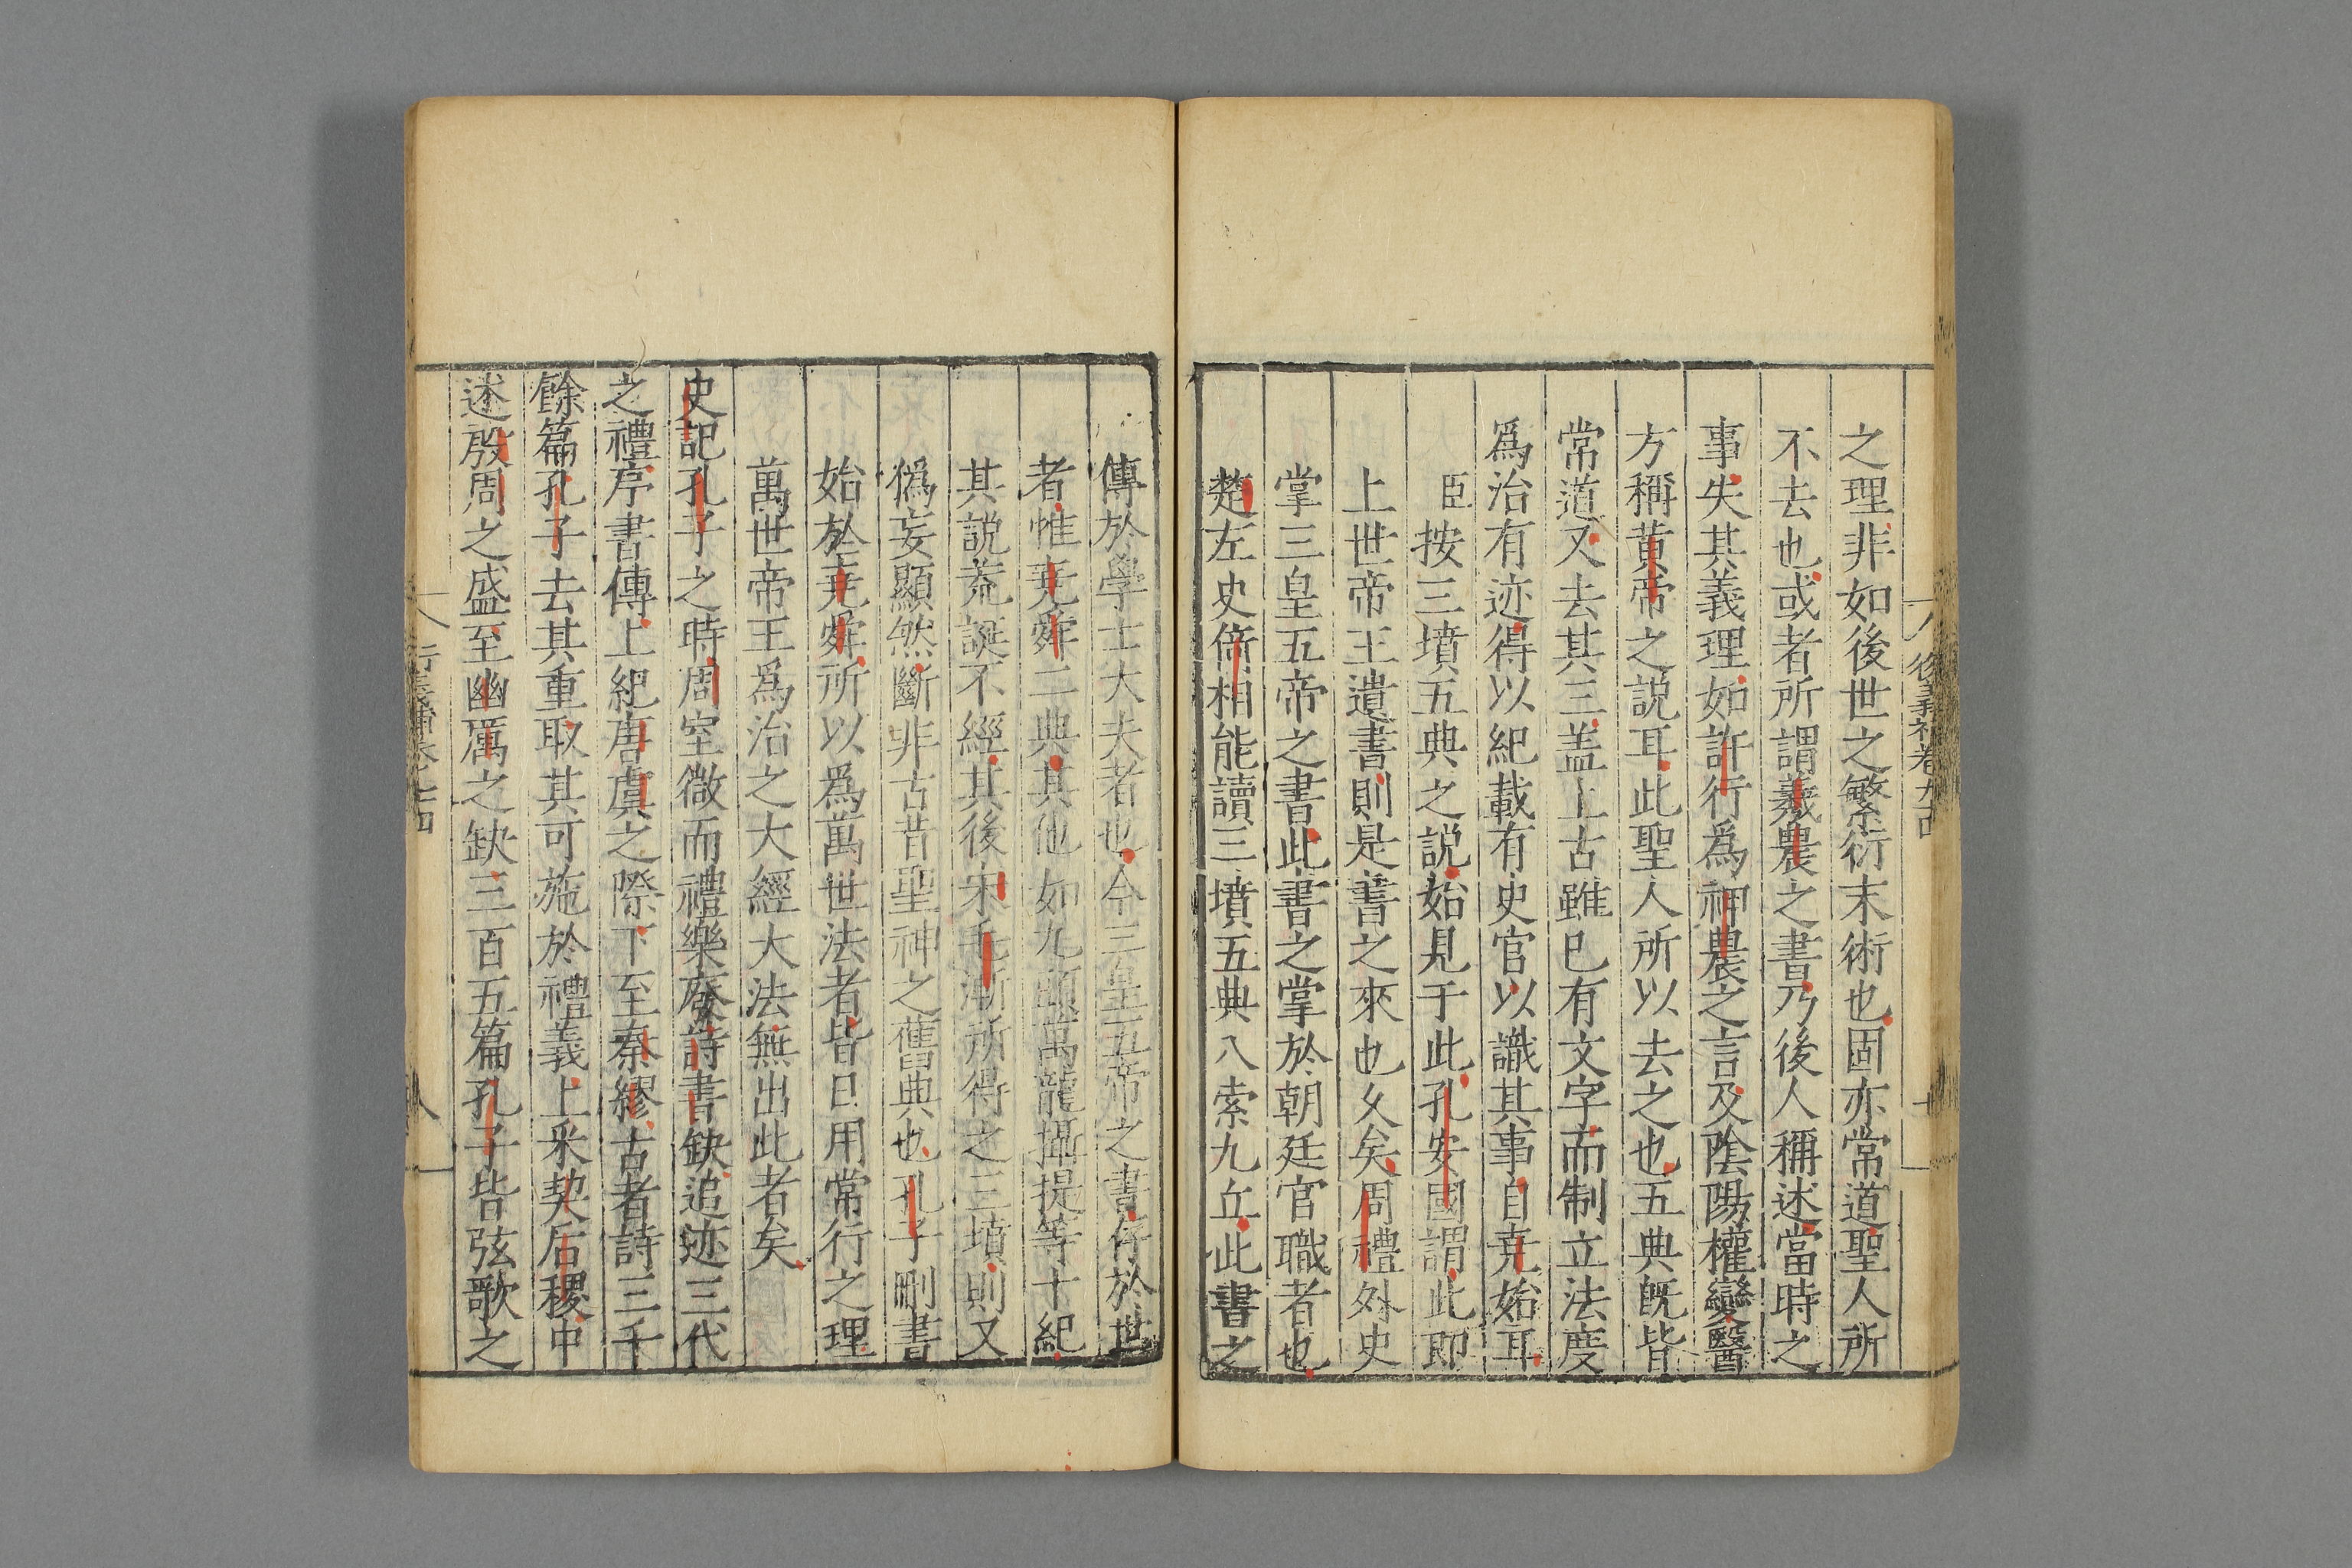 之理非如後世之繁衍末術也固亦常道聖人所
不去也或者所謂羲農之書乃後人稱述當時之
事失其義理如許行爲神農之言及陰陽權變醫
方稱黃帝之説耳此聖人所以去之也五典既皆
常道又去其三盖上古雖已有文字而制立法度
爲治有迹得以紀載有史官以識其事自堯始耳
臣按三墳五典之説始見于此孔安國謂此即
上世帝王遺書則是書之來也久矣周禮外史
掌三皇五帝之書此書之掌於朝廷官職者也
楚左史倚相能讀三墳五典八索九丘此書之
傳於學士大夫者也今三皇五帝之書存於世
者惟堯舜二典其他如九頭萬龍攝提等十紀
其説荒誕不經其後宋毛漸所得之三墳則又
僞妄顯然斷非古昔聖神之舊典也孔子刪書
始於堯舜所以爲萬世法者皆日用常行之理
萬世帝王爲治之大經大法無出此者矣
史記孔子之時周室微而禮樂廢詩書缺追迹三代
之禮序書傳上紀唐虞之際下至秦繆古者詩三千
餘篇孔子去其重取其可施於禮義上采契后稷中
述殷周之盛至幽厲之缺三百五篇孔子皆弦歌之